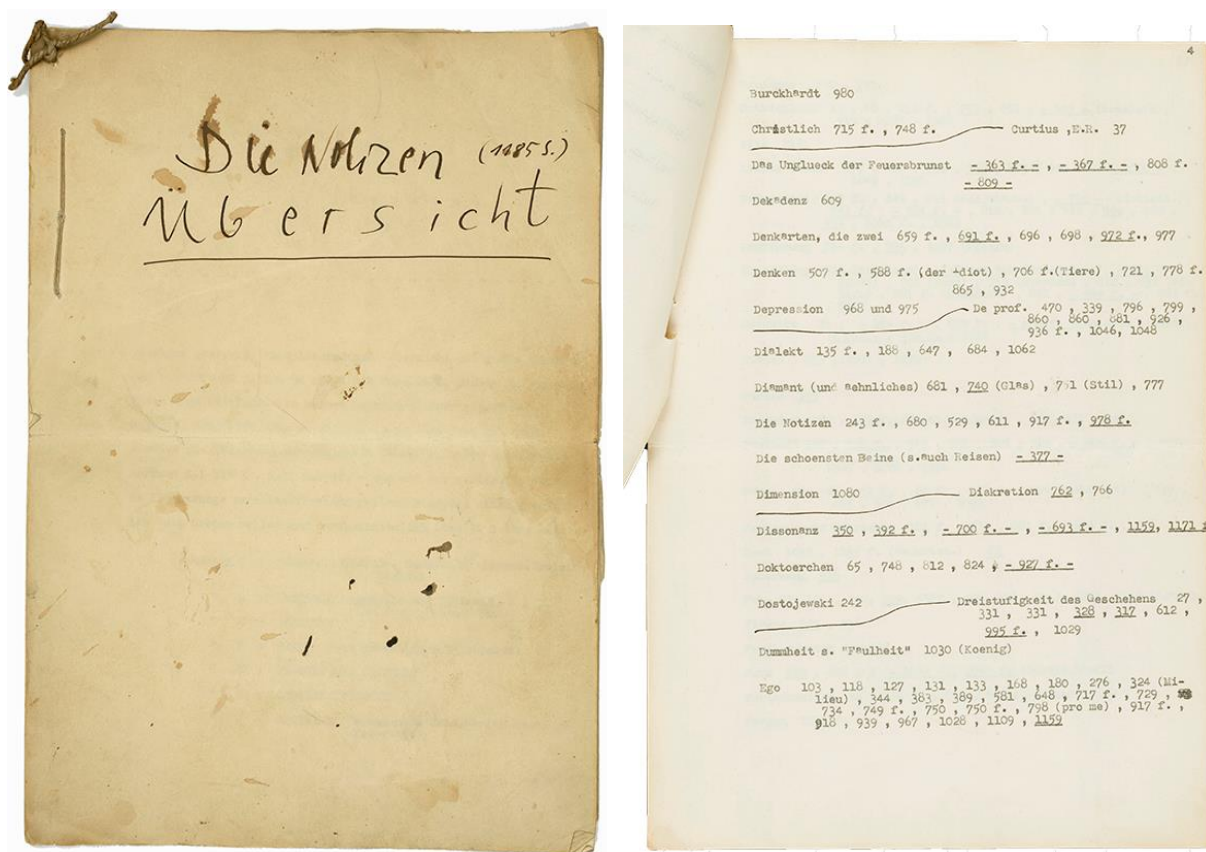 Die Notizen (1185 S.)
Übersicht
4
Burckhardt 980
Christlich 715 f. , 748 f. Curtius ,E.R. 37
Das Unglueck der Feuersbrunst - 363 f. - , - 367 f. - , 808 f.
- 809 -
Dekadenz 609
Denkarten, die zwei 659 f. , 691 f. , 696 , 698 , 972 f., 977
Denken 507 f. , 588 f. (der Idiot) , 706 f.(Tiere) , 721 , 778 f.
865 , 932
Depression 968 und 975 De prof. 470 , 339 , 796 , 799 ,
860 , 860 , 881 , 926 ,
936 f. , 1046, 1048
Dialekt 135 f. , 188 , 647 , 684 , 1062
Diamant (und aehnliches) 681 , 740 (Glas) , 751 (Stil) , 777
Die Notizen 243 f. , 680 , 529 , 611 , 917 f. , 978 f.
Die schoensten Beine (s.auch Reisen) - 377 -
Dimension 1080 Diskretion 762 , 766
Dissonanz 350 , 392 f. , - 700 f. - , - 693 f. - , 1159, 1171 f
Doktoerchen 65 , 748 , 812 , 824 , - 927 f. -
Dostojewski 242 Dreistufigkeit des Geschehens 27 ,
331 , 331 , 328 , 317 , 612 ,
995 f. , 1029
Dummheit s. "Faulheit" 1030 (Koenig)
Ego 103 , 118 , 127 , 131 , 133 , 168 , 180 , 276 , 324 (Mi-
lieu) , 344 , 383 , 389 , 581 , 648 , 717 f. , 729 ,
734 , 749 f. , 750 , 750 f. , 798 (pro me) , 917 f. ,
918 , 939 , 967 , 1028 , 1109 , 1159